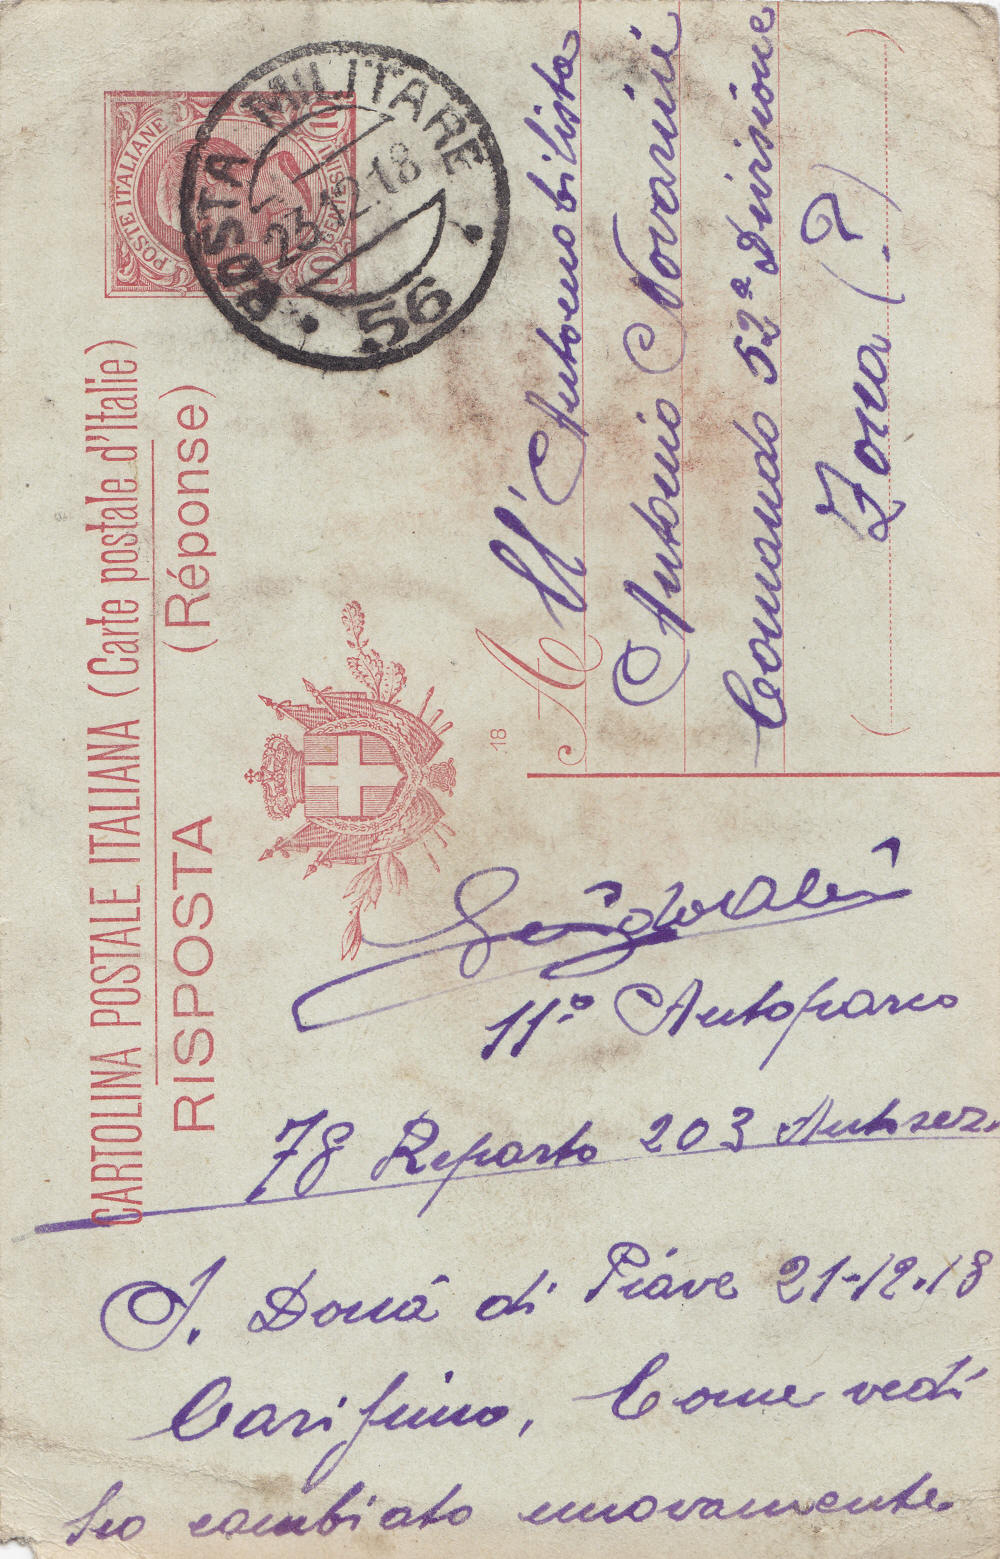 CARTOLINA POSTALE ITALIANA (Carte postale d'Italie)
RISPOSTA (Réponse)
POSTE ITALIANE
10 CENTESIMI 10
POSTA MILITARE
23.12.18
56
18
A
All' Automobilista
Antonio Novarini
Comando 52ª Divisione
Zona (?)
11º Autoparco
78 Reparto 203 Autosez.
S. Donà di Piave 21-12-18
Carissimo, Come vedi
ho cambiato nuovamente